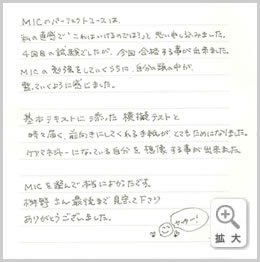 MICのパーフェクトコースは、
私の直感で“これはいけるのでは?”と思い申し込みました。
4回目の試験でしたが、今回合格する事が出来ました。
MICの勉強をしていくうちに、自分の頭の中が
整っていくように感じました。
基本テキストに添った模擬テストと
時々届く、前向きにしてくれるお手紙がとてもためになりました。
ケアマネジャーになっている自分を想像する事が出来ました。
MICを選んで本当によかったです。
栁野さん最後まで見守って下さり
ありがとうございました。
拡大